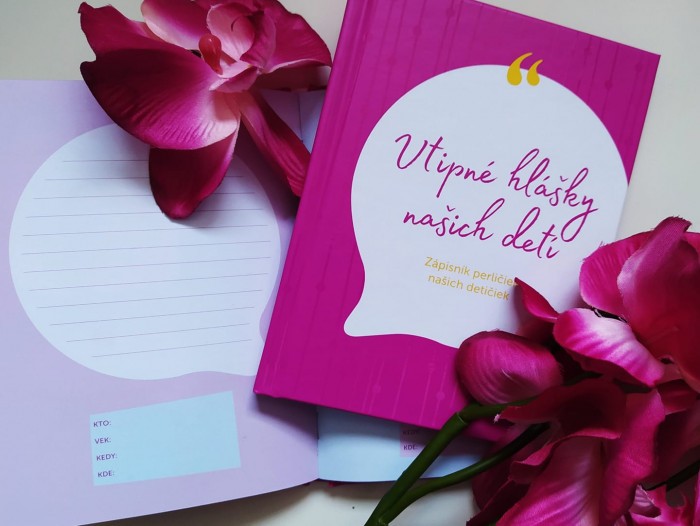 Vtipné hlášky
našich detí
Zápisník perličiek
našich detičiek
KTO:
VEK:
KEDY:
KDE: